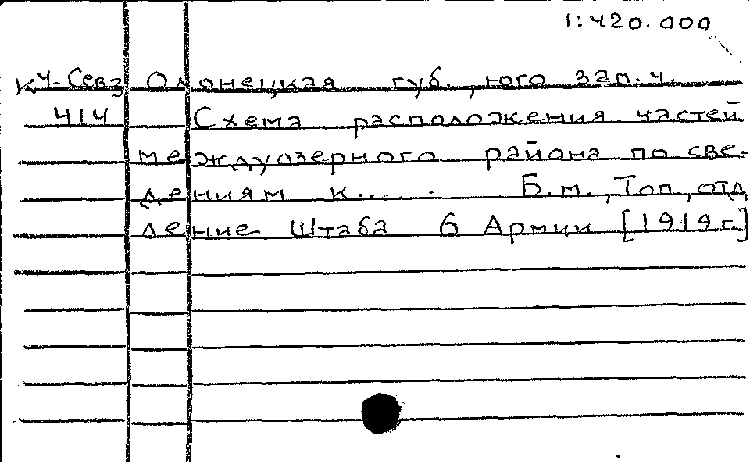 1:420.000
К4-Севз Олонецкая губ., юго зап. ч.
414 Схема расположения частей
междуозерного района по све-
дениям к.... . Б.м., Топ., отд
ление Штаба 6 Армии [1919г.]